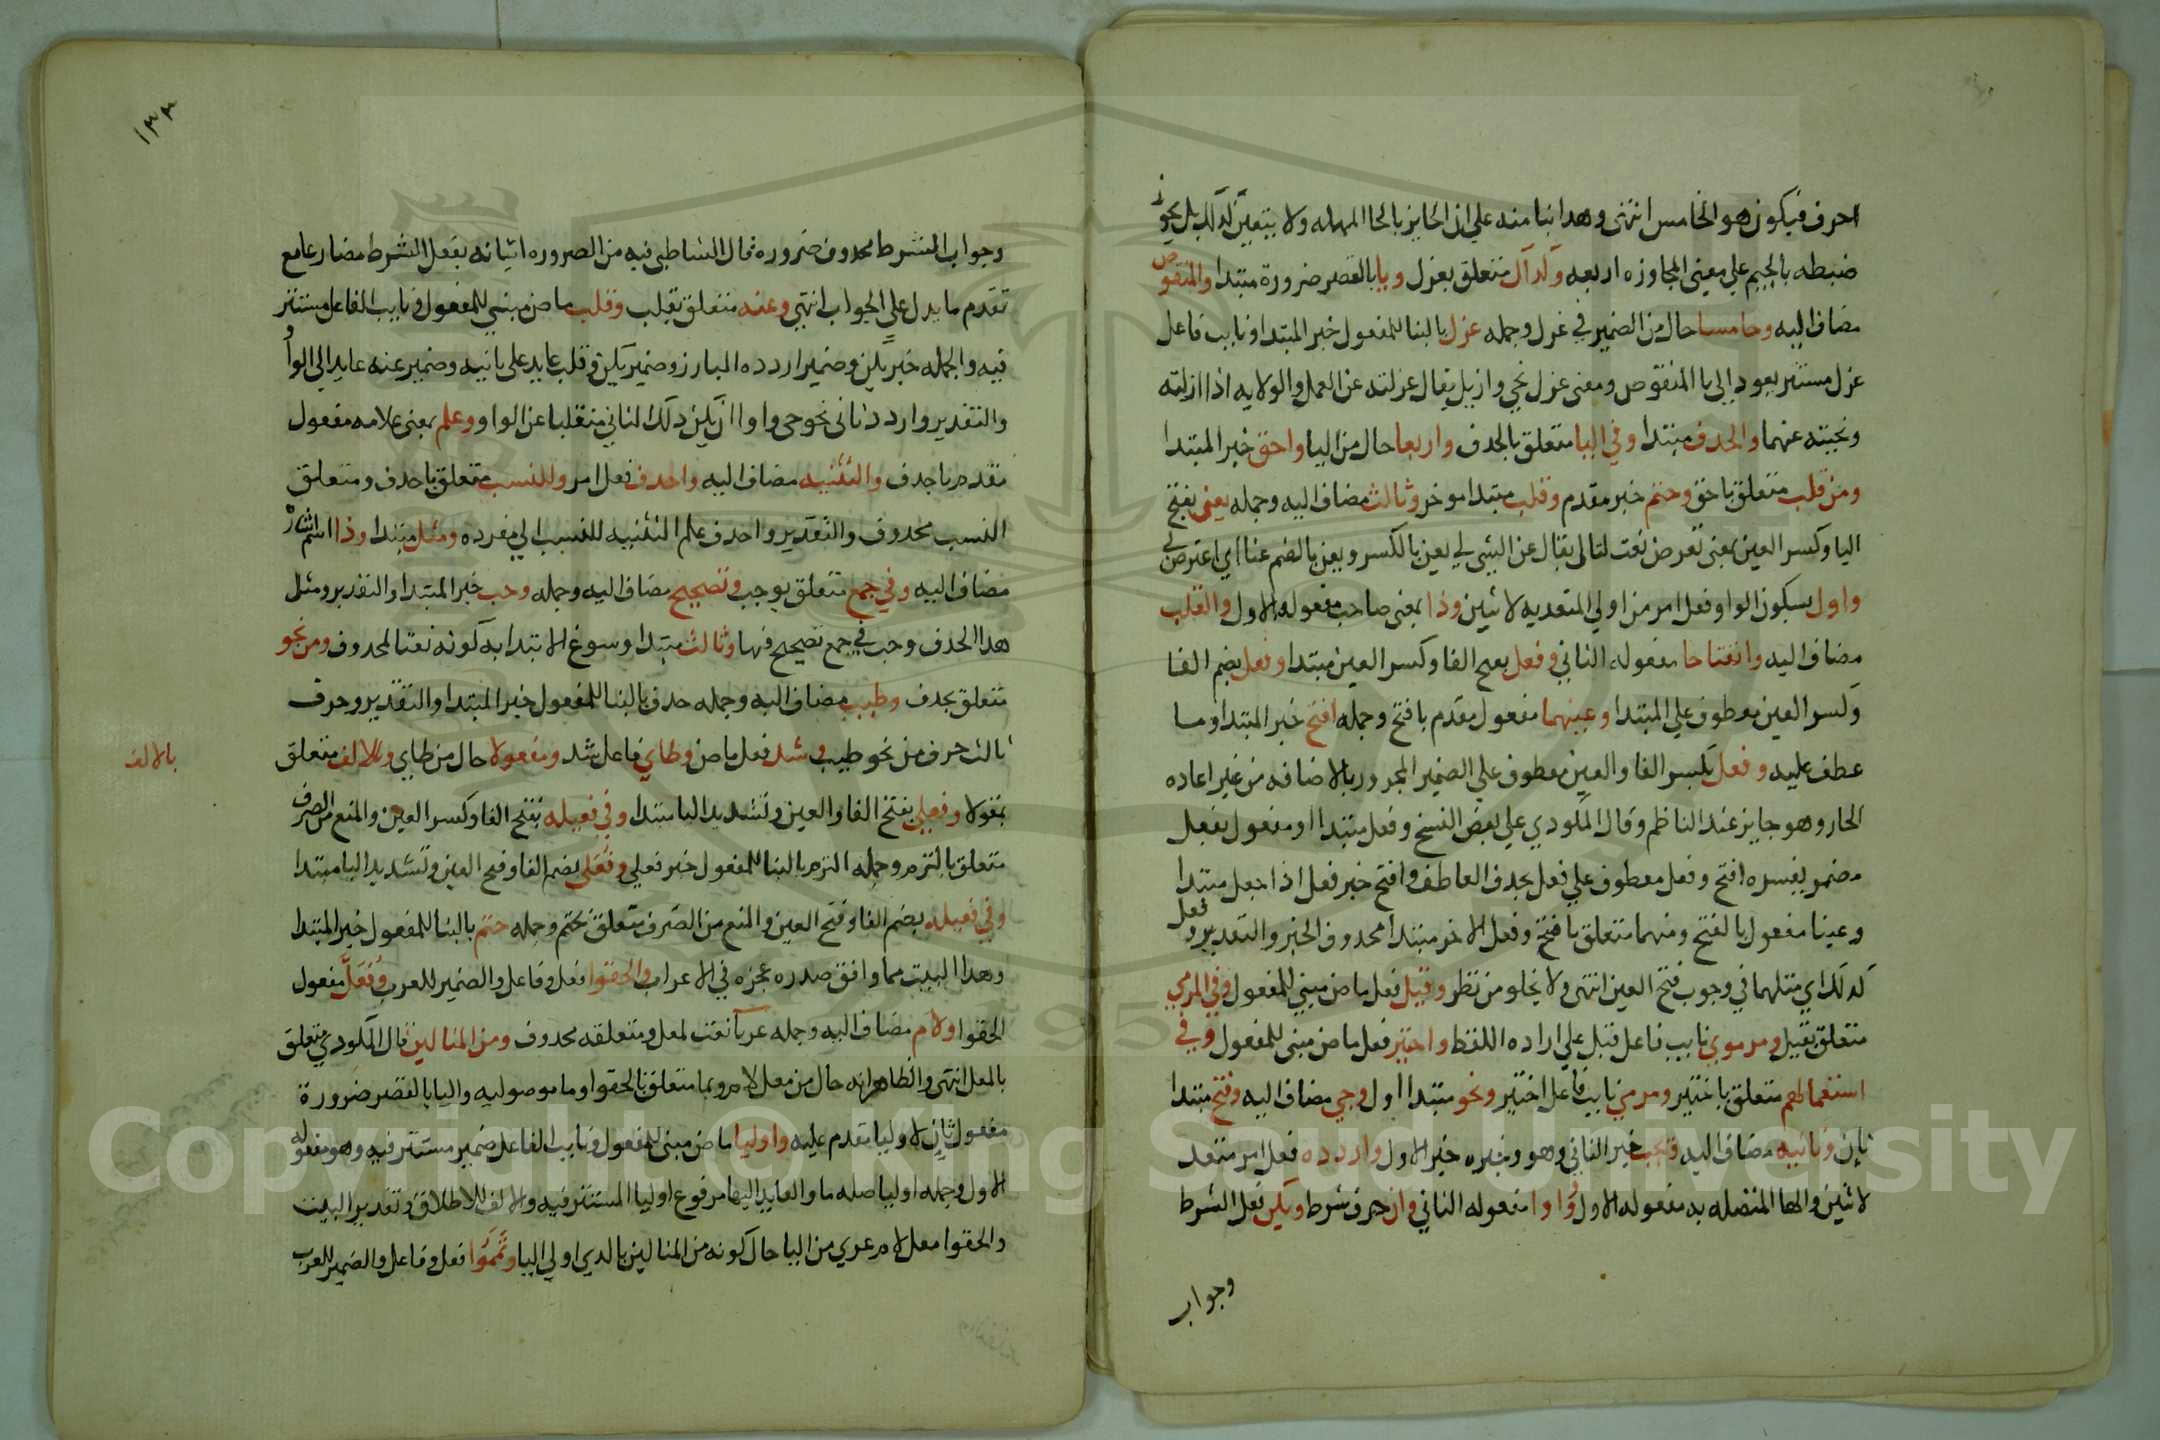 احرف فيكون هو الخامس انتهى وهذا بنا منه علي ان الحايز بالحا المهمله ولا يتعين ذلك بل يجوز
ضبطه بالجيم علي معني المجاوزه اربعه وكذاك متعلق بعزل ويا بالقصر ضرورة مبتدا والمنقوص
مضاف اليه وخامسا حال من الضمير في عزل وجمله عزل بالبنا للمفعول خبر المبتدا ونايب فاعل
عزل مستتر يعود الي يا المنقوص ومعني عزل نحي وازيل يقال عزلته عن العمل والولايه اذا ازلته
ونحيته عنهما والحذف مبتدا وفي اليا متعلق بالحذف واربعا حال من اليا واحق خبر المبتدا
ومن قلب متعلق باحق وحتم خبر مقدم وقلب مبتدا موخر وثالث مضاف اليه وجمله يعن بفتح
اليا وكسر العين بمعني تعرض نعت لثالث يقال عن الشي لي يعن بالكسر ويعن بالضم عننا اي اعترض لي
واول بسكون الواو فعل امر من اولي المتعديه لاثنين وذا بمعني صاحب مفعوله الاول والقلب
مضاف اليه وانفتاحا مفعوله الثاني وفعل بفتح الفا وكسر العين مبتدا وفعل بضم الفا
وكسر العين معطوف علي المبتدا وعينهما مفعول مقدم بافتح وجمله افتح خبر المبتدا وما
عطف عليه وفعل بكسر الفا والعين معطوف علي الضمير المجرور بالاضافه من غير اعاده
الجار وهو جايز عند الناظم وقال المكودي علي بعض النسخ وفعل مبتدا او مفعول بفعل
مضمر يفسره افتح وفعل معطوف علي فعل بحذف العاطف وافتح خبر فعل اذا جعل مبتدا
وعينا مفعول بالفتح ومنهما متعلق بافتح وفعل الاخر مبتدا محذوف الخبر والتقدير وفعل
كذلك اي مثلهما في وجوب فتح العين انتهى ولا يخلو من نظر وقيل فعل ماض مبني للمفعول وفي المرمي
متعلق بقيل ومرموي نايب فاعل قيل علي اراده اللفظ واختير فعل ماض مبني للمفعول وفي
استعمالهم متعلق باختير ومرمي نايب فاعل اختير ونحو مبتدا اول وحي مضاف اليه وفتح مبتدا
ثان وثانيه مضاف اليه ويجب خبر الثاني وهو وخبره خبر الاول واردده فعل امر متعد
لاثنين والها المتصله به مفعوله الاول وواوا مفعوله الثاني وان حرف شرط ويكن فعل الشرط
وجواب
١٣٣
وجواب الشرط محذوف ضروره قال الشاطبي فيه من الضروره اتيانه بفعل الشرط مضارعا مع
تقدم ما يدل علي الجواب انتهي وعنه متعلق بقلب وقلب ماض مبني للمفعول ونايب الفاعل مستتر
فيه والجمله خبر يكن وضمير اردده البارز وضمير يكن وقلب عايد علي ثانيه وضمير عنه عايد الي الواو
والتقدير واردد ثاني نحو حي واوا ان يكن ذلك الثاني منقلبا عن الواو وعلم بمعني علامه مفعول
مقدم باحذف والتثنيه مضاف اليه واحذف فعل امر وللنسب متعلق باحذف ومتعلق
النسب محذوف والتقدير واحذف علم التثنيه للنسب الي مفرده ومثل مبتدا وذا اسم اشارة
مضاف اليه وفي جمع متعلق بوجب وتصحيح مضاف اليه وجمله وجب خبر المبتدا والتقدير ومثل
هذا الحذف وجب في جمع تصحيح فيها وثالث مبتدا وسوغ الابتدا به كونه نعتا لمحذوف ومن نحو
متعلق بحذف وطيب مضاف اليه وجمله حذف بالبنا للمفعول خبر المبتدا والتقدير وحرف
ثالث حرف من نحو طيب وشذ فعل ماض وطاي فاعل شذ ومقولا حال من طاي وبالالف متعلق
بالالف
بمقولا وفعلي بفتح الفا والعين وتشديد اليا مبتدا وفي فعيله بفتح الفا وكسر العين والمنع من الصرف
متعلق بالتزم وجمله التزم بالبنا للمفعول خبر فعلي وفعلي بضم الفا وفتح العين وتشديد اليا مبتدا
وفي فعيله بضم الفا وفتح العين والمنع من الصرف متعلق بحتم وجمله حتم بالبنا للمفعول خبر المبتدا
وهذا البيت مما وافق صدره عجزه في الاعراب والحقوا فعل وفاعل والضمير للعرب ومعل مفعول
الحقوا ولام مضاف اليه وجمله عريا نعت لمعل ومتعلقه محذوف ومن المثالين قال المكودي متعلق
بالمعل انتهي والظاهر انه حال من معل لام وبما متعلق بالحقوا وما موصوليه واليا بالقصر ضرورة
مفعول ثان لاوليا مقدم عليه واوليا ماض مبني للمفعول ونايب الفاعل ضمير مستتر فيه وهو مفعوله
الاول وجمله اوليا صله ما والعايد اليها مرفوع اوليا المستتر فيه والالف للاطلاق وتقدير البيت
والحقوا معل لام عري من اليا حال كونه من المثالين بالذي اولي اليا وتمموا فعل وفاعل والضمير للعرب